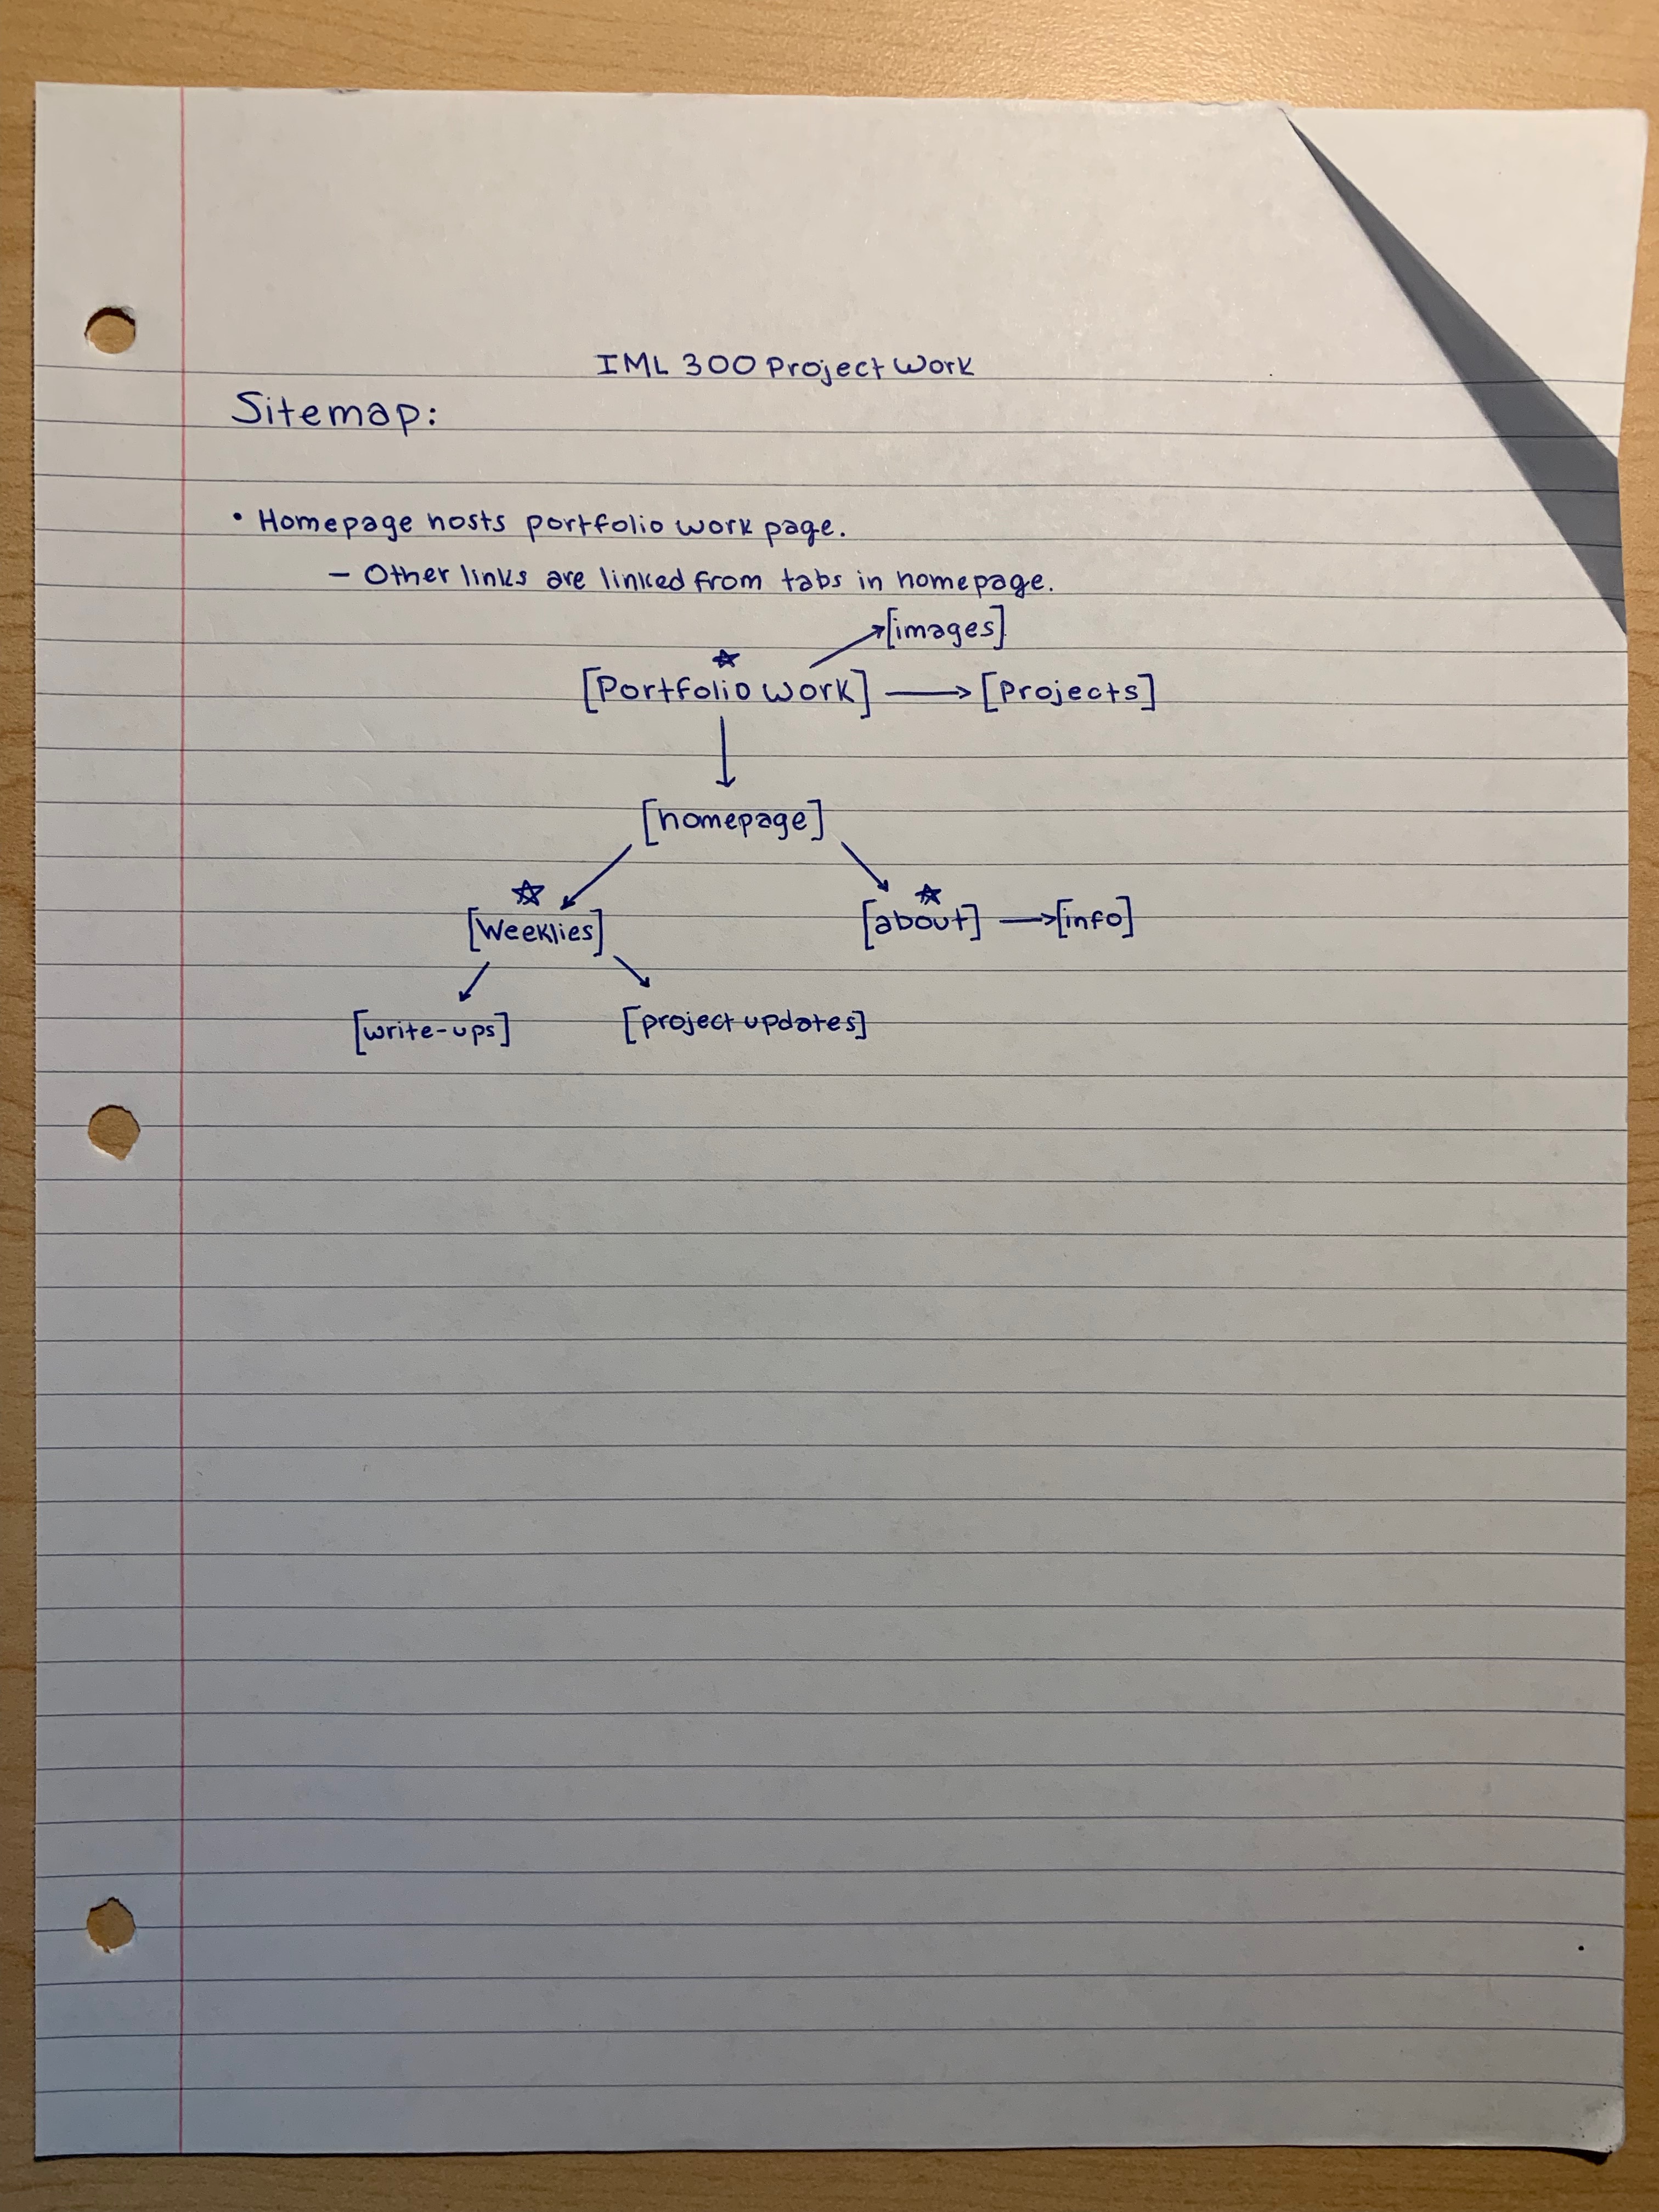 IML 300 Project Work
Sitemap:
• Homepage hosts portfolio work page.
– Other links are linked from tabs in homepage.
[images]
[Portfolio work] → [Projects]
[homepage]
[Weeklies]
[about] → [info]
[write-ups]
[project updates]